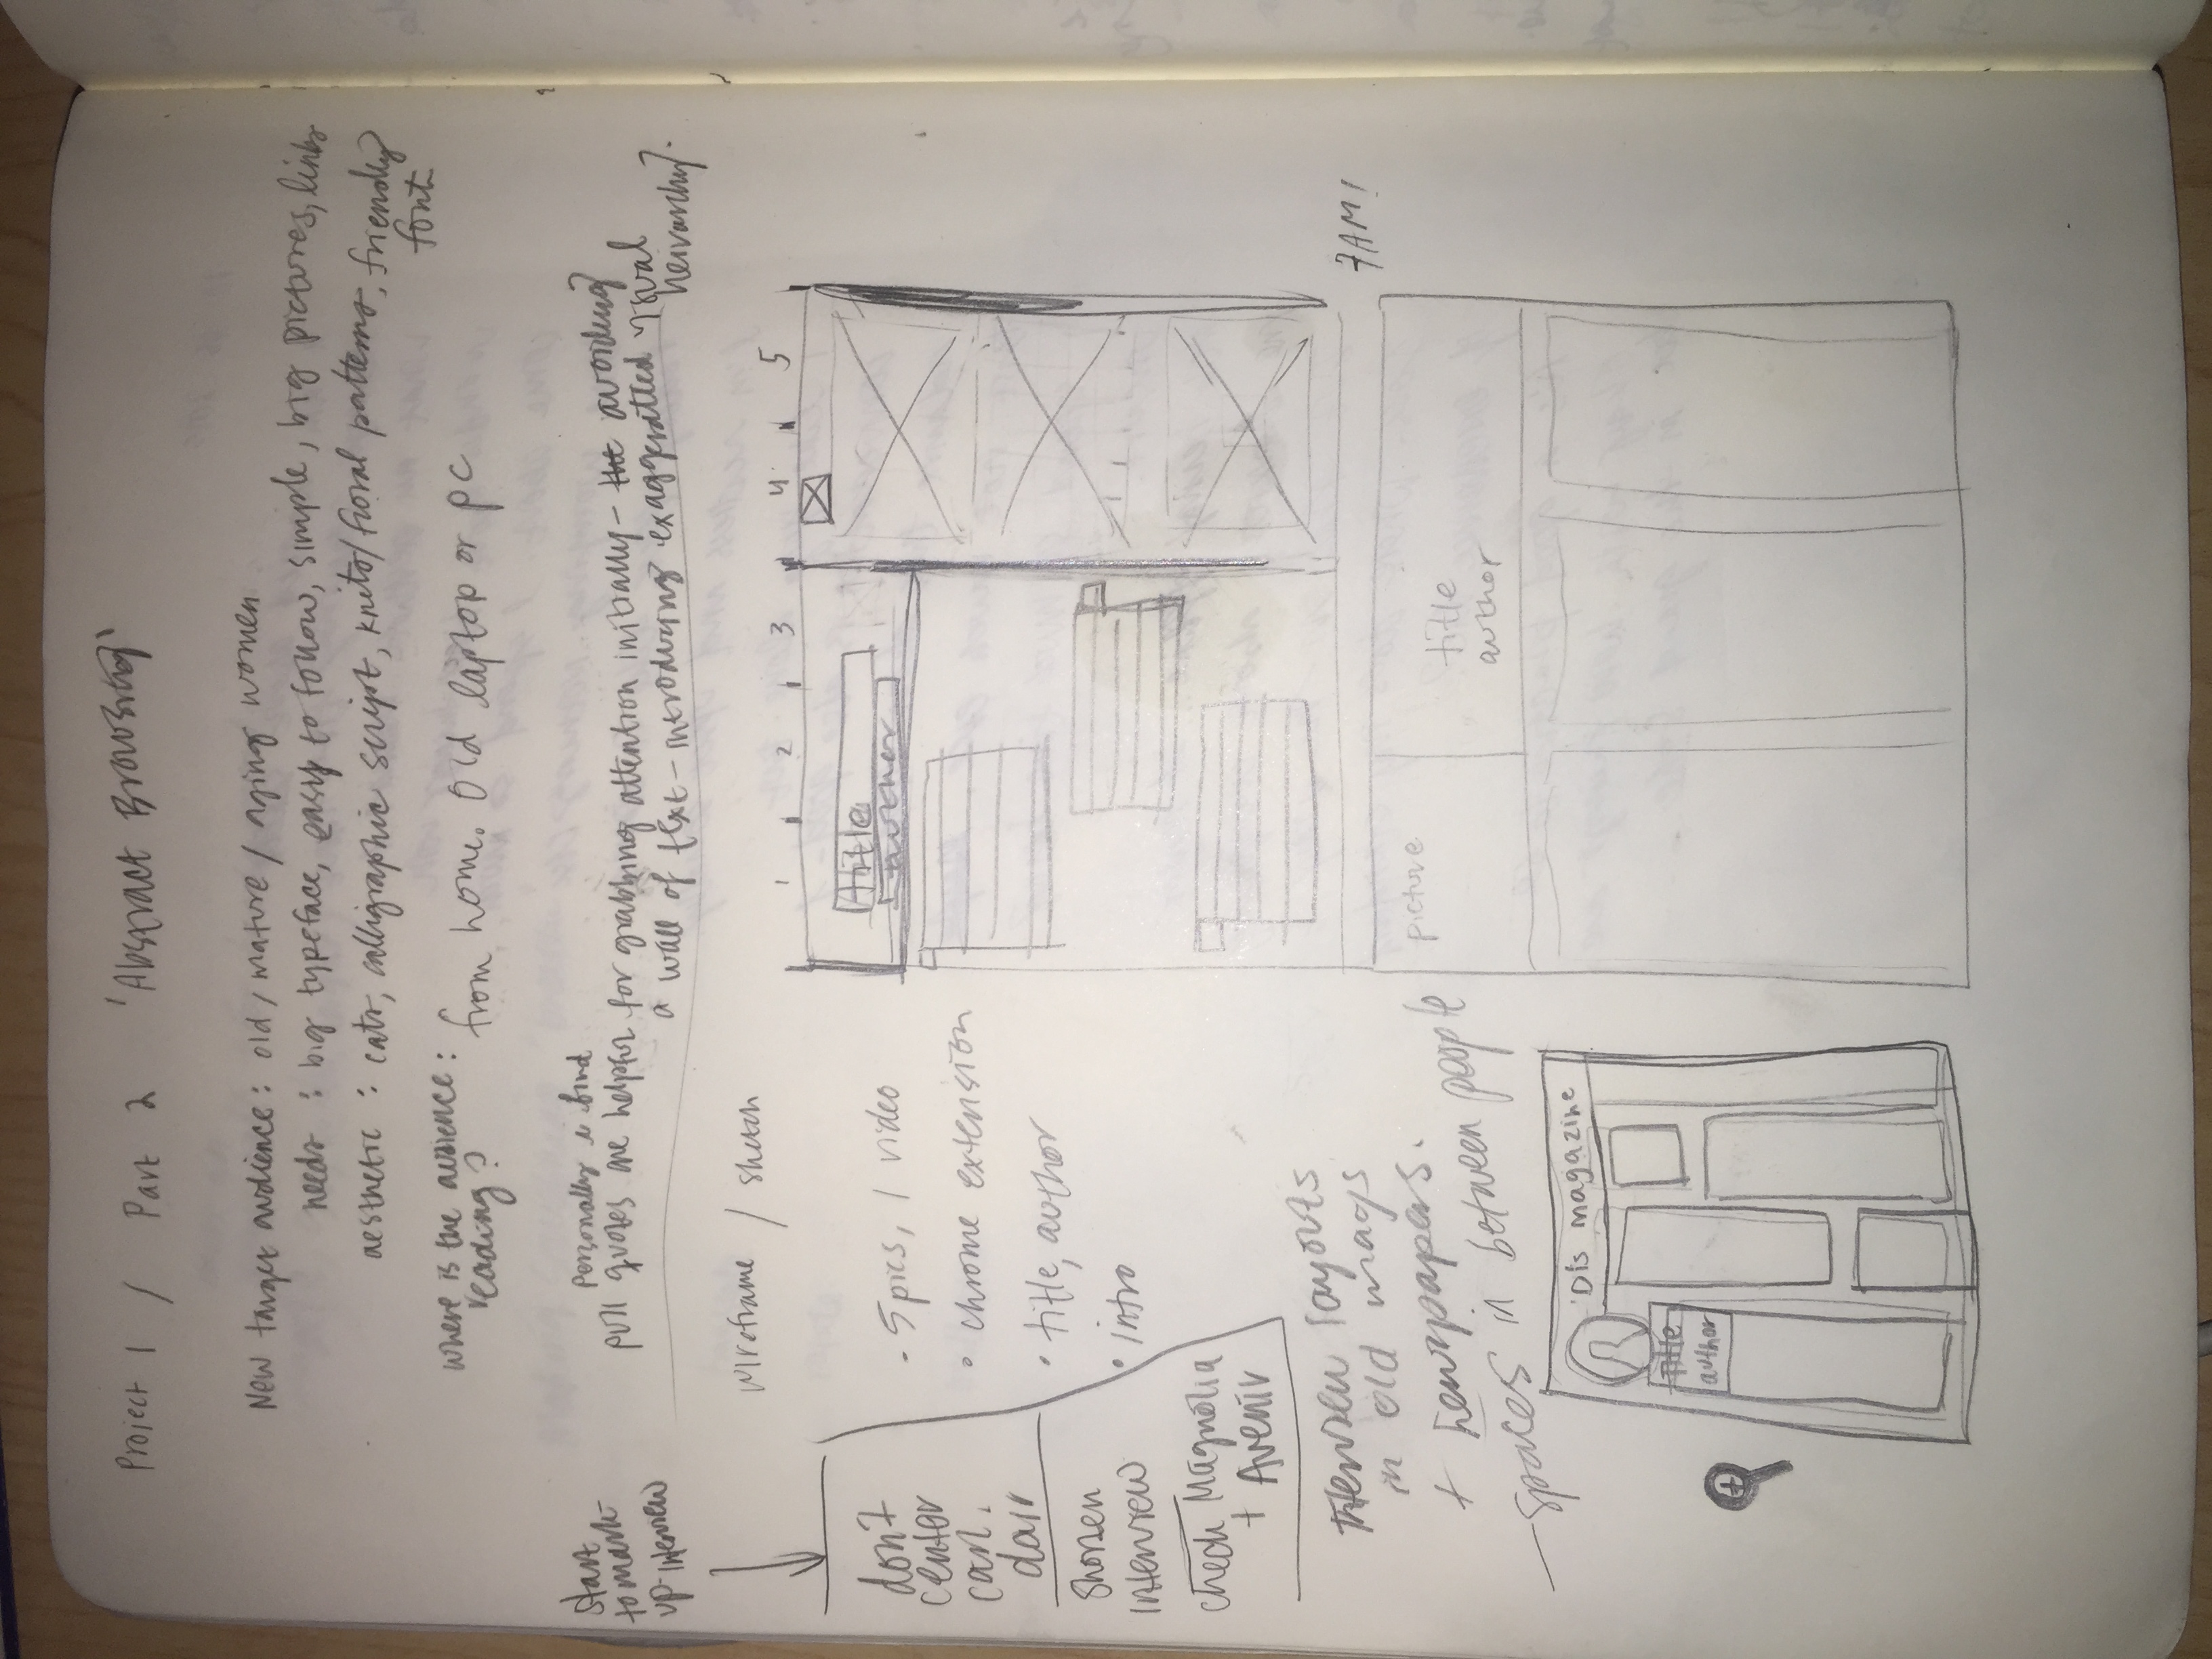 Project 1 / Part 2 'Abstract Browsing'
New target audience: old/mature/aging women
needs : big typeface, easy to follow, simple, big pictures, links
aesthetic : cats, calligraphic script, knits/floral patterns, friendly
font
where is the audience :
reading?
from home. Old laptop or pc
start
to mark-
up interview
Personally i find
pull quotes are helpful for grabbing attention initially – the avoiding
a wall of text – introducing exaggeratted visual
heirarchy.
wireframe / sketch
don't
center
shorten
interview
check Magnolia
+ Avenir
. 5 pics, 1 video
• chrome extension
• title, author
• intro
1 2 3 4 5
title
author
Interview layouts
in old mags
+ newspapers.
— spaces in between people
7AM!
picture
title
author
Dis magazine
title
author